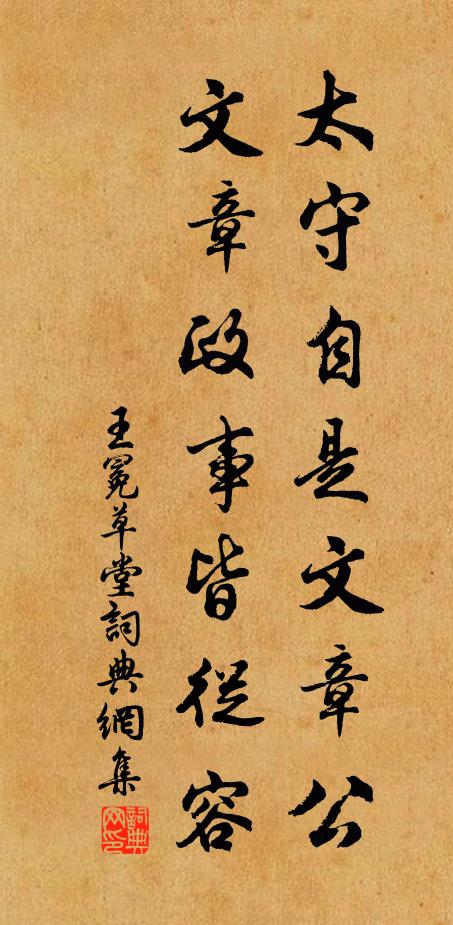 太守自是文章公
文章政事皆從容
王冕草堂詞典網集
詞典网印